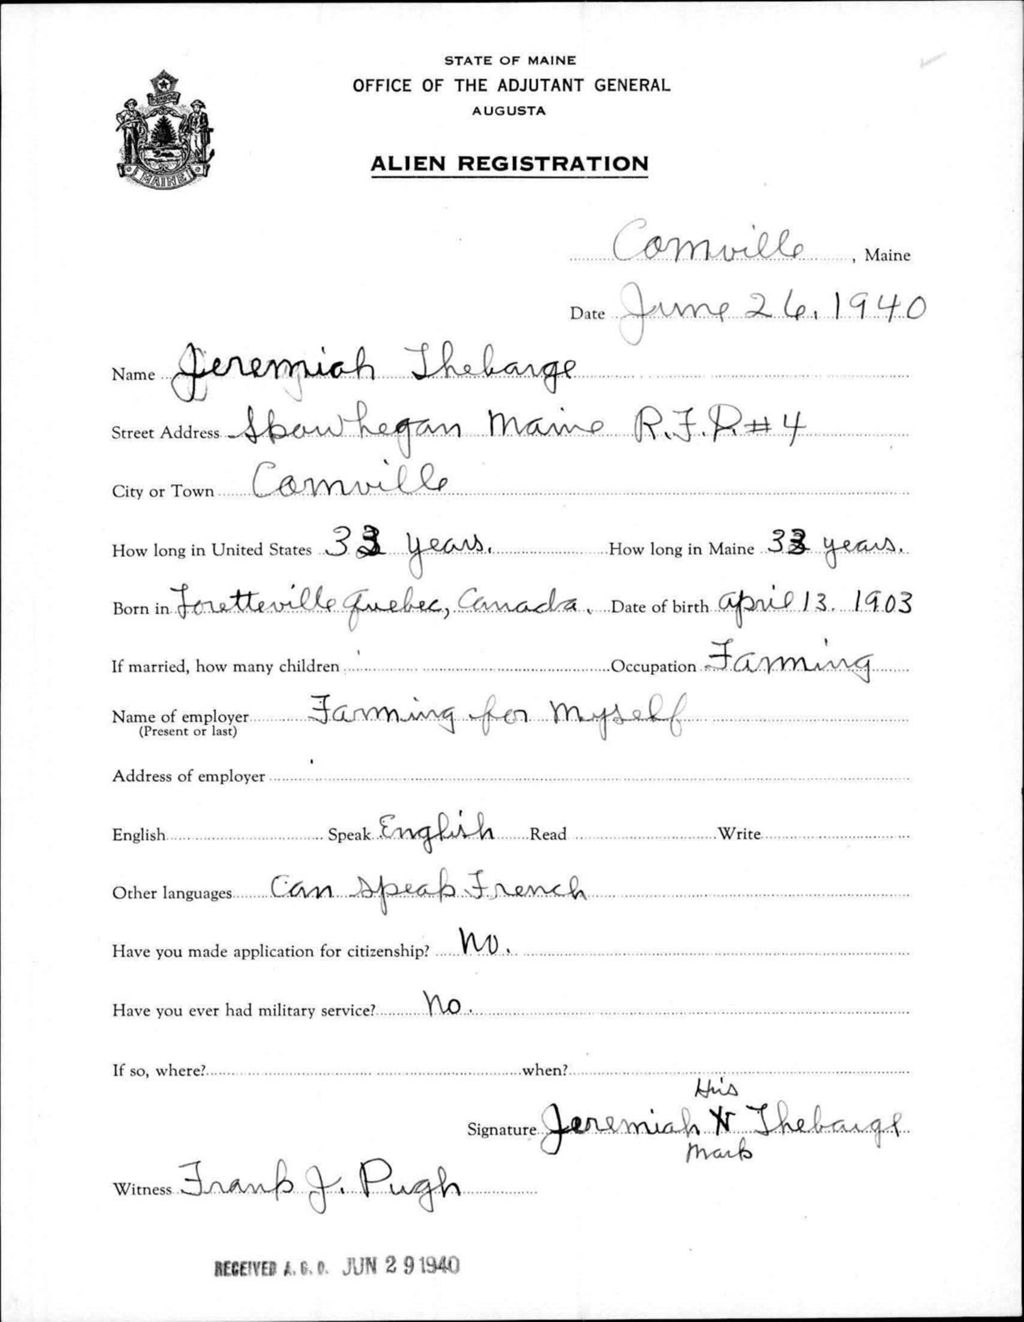 STATE OF MAINE
OFFICE OF THE ADJUTANT GENERAL
AUGUSTA
ALIEN REGISTRATION
MAINE
Cornville, Maine
Date June 26, 1940
Name Jeremiah Thebarge
Street Address Skowhegan Maine R.F.D. #4
City or Town Cornville
How long in United States 33 years. How long in Maine 33 years.
Born in Loretteville Quebec, Canada. Date of birth April 13. 1903
If married, how many children Occupation Farming
Name of employer Farming for Myself
(Present or last)
Address of employer
English Speak English Read Write
Other languages Can Speak French
Have you made application for citizenship? No.
Have you ever had military service? No.
If so, where? when?
His
Signature Jeremiah X Thebarge
Mark
Witness Frank J. Pugh
RECEIVED A.G.O. JUN 29 1940